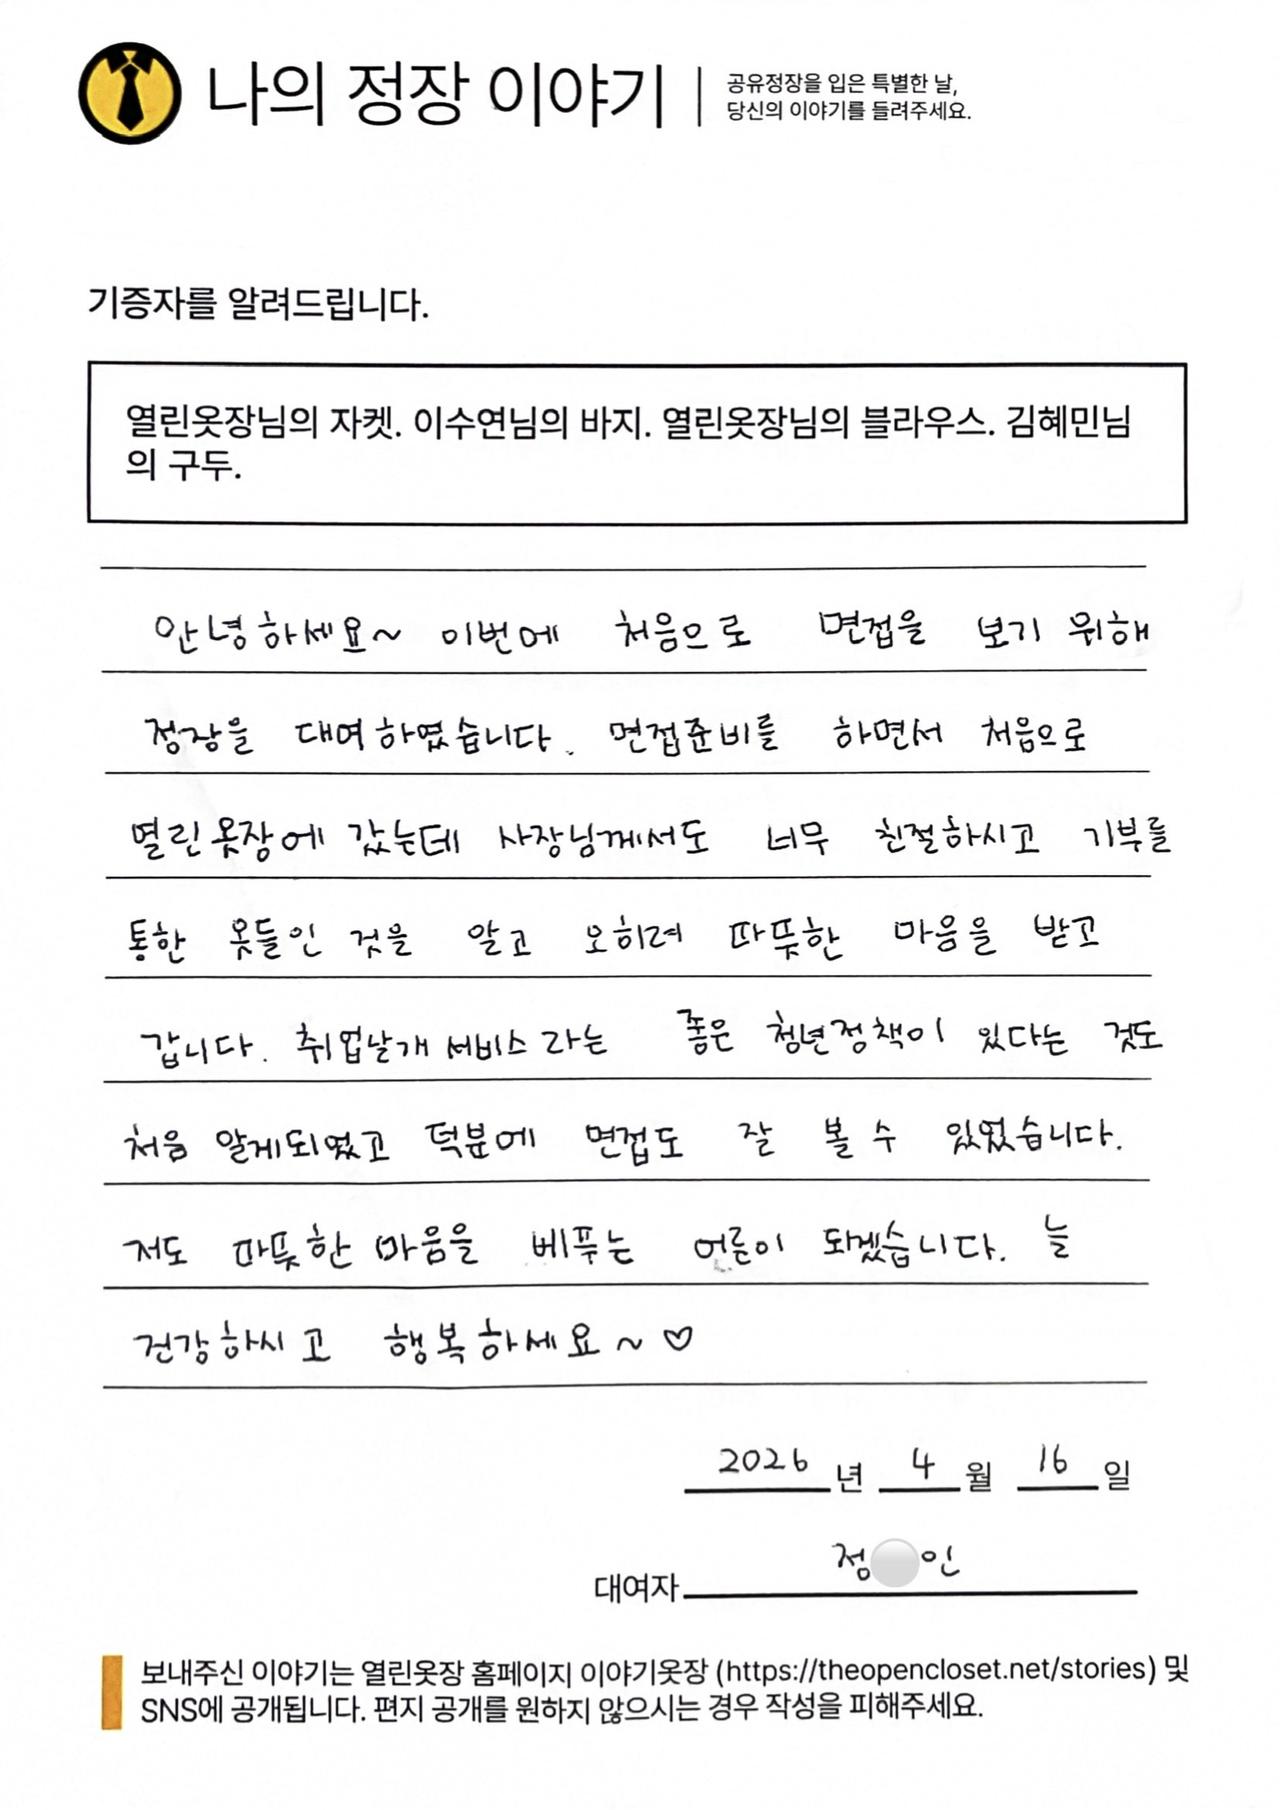 나의 정장 이야기
공유정장을 입은 특별한 날,
당신의 이야기를 들려주세요.
기증자를 알려드립니다.
열린옷장님의 자켓. 이수연님의 바지. 열린옷장님의 블라우스. 김혜민님
의 구두.
안녕하세요~ 이번에 처음으로 면접을 보기 위해
정장을 대여하였습니다. 면접준비를 하면서 처음으로
열린옷장에 갔는데 사장님께서도 너무 친절하시고 기부를
통한 옷들인 것을 알고 오히려 따뜻한 마음을 받고
갑니다. 취업날개 서비스라는 좋은 청년정책이 있다는 것도
처음 알게되었고 덕분에 면접도 잘 볼 수 있었습니다.
저도 따뜻한 마음을 베푸는 어른이 되겠습니다. 늘
건강하시고 행복하세요~♡
2026 년 4 월 16 일
대여자 정 인
보내주신 이야기는 열린옷장 홈페이지 이야기옷장 (https://theopencloset.net/stories) 및
SNS에 공개됩니다. 편지 공개를 원하지 않으시는 경우 작성을 피해주세요.